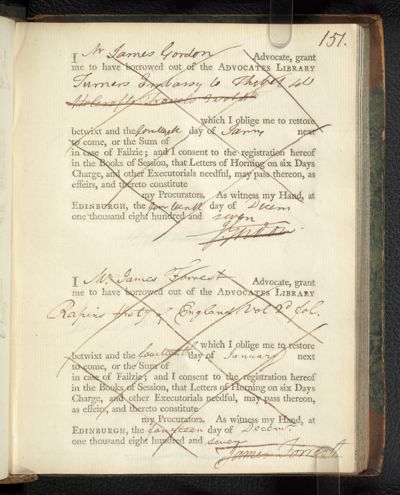 151.
I Mr James Gordon Advocate, grant
me to have borrowed out of the ADVOCATES LIBRARY
Turners Embassy to Thibet 4to
which I oblige me to restore
betwixt and the fourteenth day of Janry next
to come, or the Sum of
in case of Failzie; and I consent to the registration hereof
in the Books of Session, that Letters of Horning on six Days
Charge, and other Executorials needful, may pass thereon, as
effeirs, and thereto constitute
my Procurators. As witness my Hand, at
EDINBURGH, the day of Decem
one thousand eight hundred and seven
I Mr James Forrest Advocate, grant
me to have borrowed out of the ADVOCATES LIBRARY
Rapins Hist of England Vol 2d fol.
which I oblige me to restore
betwixt and the fourteenth day of January next
to come, or the Sum of
in case of Failzie; and I consent to the registration hereof
in the Books of Session, that Letters of Horning on six Days
Charge, and other Executorials needful, may pass thereon,
as effeirs, and thereto constitute
my Procurators. As witness my Hand, at
EDINBURGH, the fourteen day of Decemr.
one thousand eight hundred and seven
James Forrest